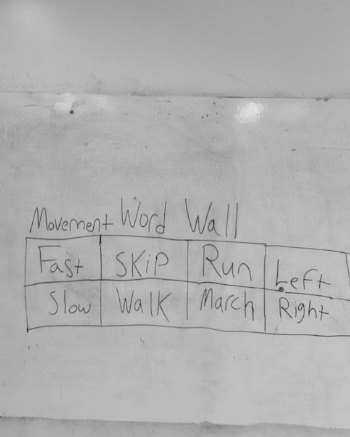 Movement Word Wall
Fast SKiP Run Left
Slow Walk March Right